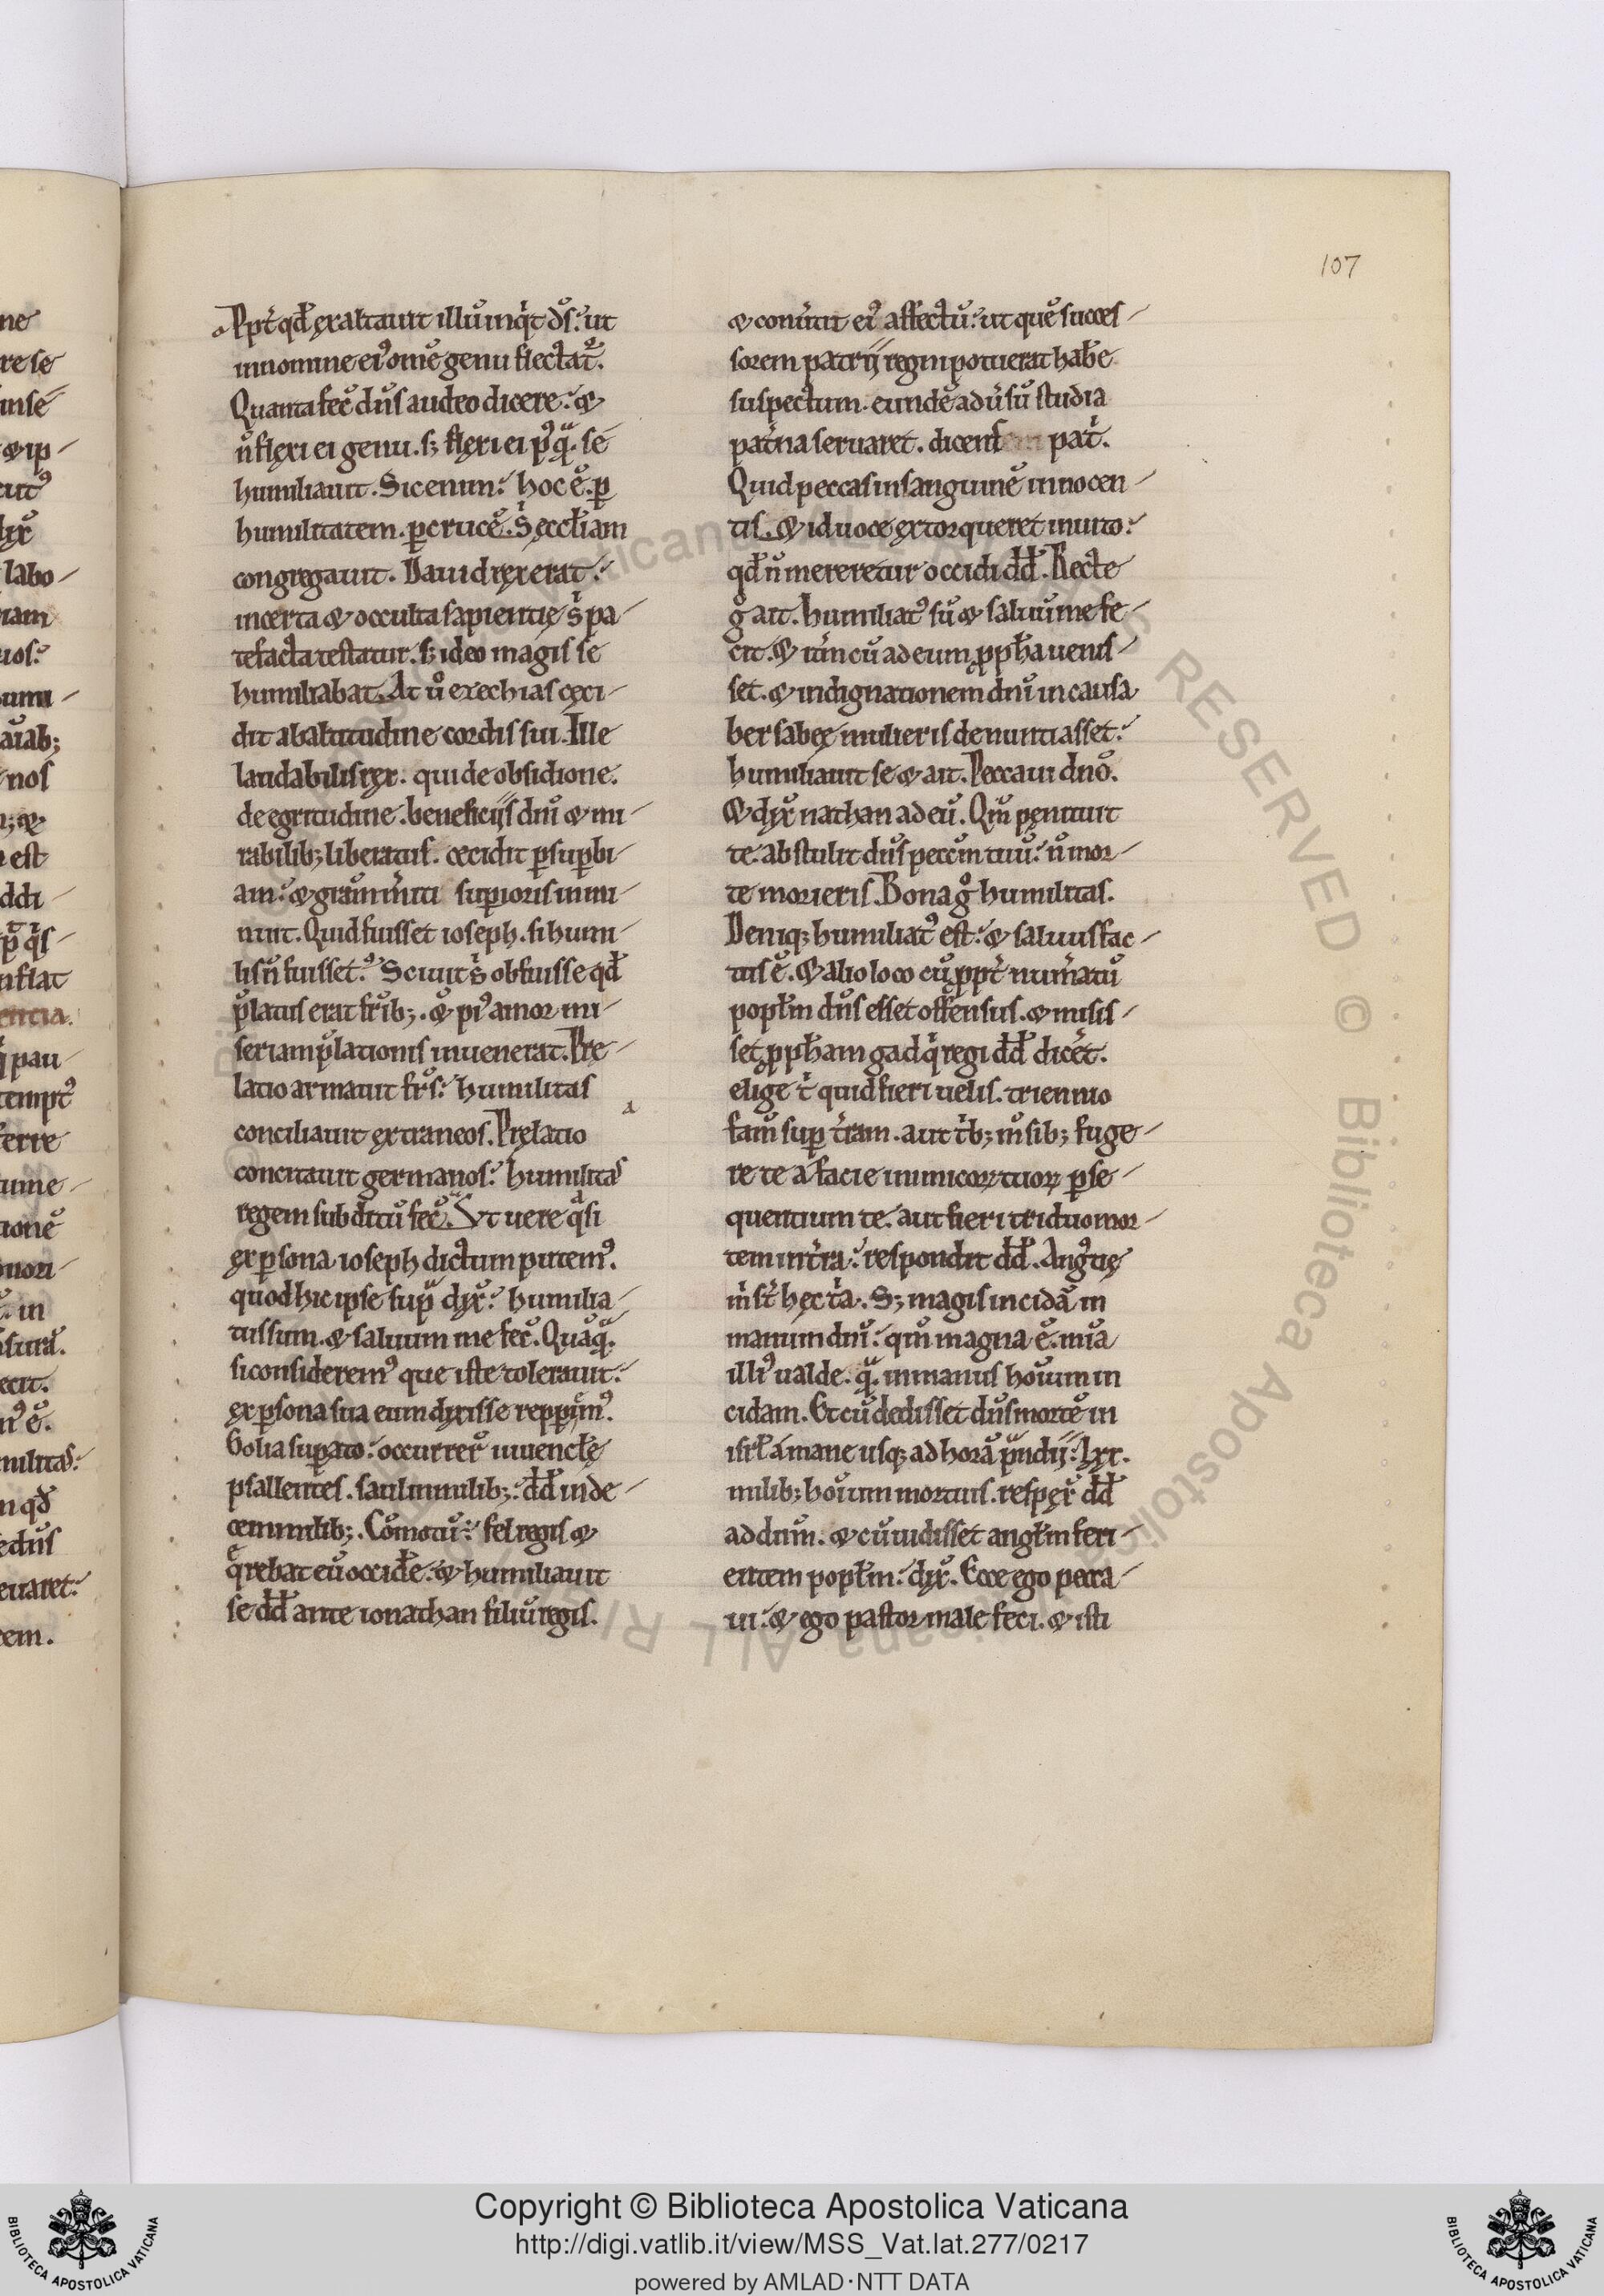 107
Ppt̓ qđ exaltauit illū inq̓t d̄s: ut
in nomine ei⁹ om̄e genu flectat᷑.
Quanta fec̄ dn̄s audeo dicere: &
n̄ flexi ei genu. sꝫ flexi ei p⁹qᷓ. se
humiliauit. Sic enim: hoc ē. ꝑ
humilitatem. ꝑ crucē. S̓ ęccłiam
congregauit. Dauid rex erat:
incerta & occulta sapientię s̓ pa-
tefacta testatur. sꝫ ideo magis se
humiliabat. At ū ezechias ceci-
dit ab altitudine cordis sui. Ille
laudabilis rex. qui de obsidione.
de egritudine. beneficiis dn̄i & mi-
rabilibꝫ liberatus. cecidit ꝑ supbi-
am: & gr̄am m̄iti supioris inmi-
nuit. Quid fuisset ioseph. si humi-
lis n̄ fuisset? Sciuit s̓ obfuisse qđ
p̄latus erat fr̄ibꝫ. & pi⁹ amor mi-
seriam p̄lationis inuenerat. Pre-
latio armauit fr̄s: humilitas
conciliauit extraneos. Prelatio
concitauit germanos: humilitas
regem subditū fec̄. Vt uere qᷓsi
ex ꝑsona ioseph dictum putem⁹.
quod hic ipse supᷓ dix̄: humilia-
tus sum. & saluum me fec̄. Quāqᷓ.
si considerem⁹ que iste tolerauit:
ex ꝑsona sua eum dixisse repperim⁹.
Golia supato: occurrer̄ iuuencłe
psallentes. saul in milibꝫ: dđ in de-
cem milibꝫ. Cōmotū: fel regis &
q̄rebat eū occiđe: & humiliauit
se dđ ante ionathan filiū regis.
& conu̓tit ei⁹ affectū: ut quē succes-
sorem patrii regni potuerat habe
suspectum. eundē adu̓sū studia
pat̓na seruaret. dicens pat̓.
Quid peccas in sanguinē innocen-
tis. & id uoce extorqueret inuito:
qđ n̄ mereretur occidi dđ. Recte
g̊ ait. humiliat⁹ sū & saluū me fe-
cit. & it̓m cū ad eum ꝓpħa uenis-
set. & indignationem dn̄i in causa
bersabee mulieris denuntiasset:
humiliauit se & ait. Peccaui dn̄o.
& dix̄ nathan ad eū. Qm̄ penituit
te. abstulit dn̄s peccm̄ tuū: n̄ mor-
te morieris. Bona g̊ humilitas.
Deniqꝫ humiliat⁹ est: & saluus fac-
tus ē. & alio loco cū ppt̓ num̓atū
popłm dn̄s esset offensus. & misis-
set ꝓpħam gad q̓ regi dđ dic̓et.
elige t̓ quid fieri uelis. triennio
famē sup t̓ram. aut t̓bꝫ m̄sibꝫ fuge-
re te a facie inimicoꝝ tuoꝝ ꝑse-
quentium te. aut fieri triduo mor-
tem in t̓ra: respondit dđ. Ang⁹tię
m̓ st̓ hec t̓a. Sꝫ magis incidā in
manum dn̄i: qm̄ magna ē. mīa
illi⁹ ualde. qᷓ. in manus hoīum in
cidam. Et cū dedisset dn̄s mortē in
isrł a mane usqꝫ ad horā pᷓndii: lxx.
milibꝫ hoīum mortuis. respex̄ dđ
ad dn̄m. & cū uidisset angłm feri-
entem popłm: dix̄. Ecce ego pecca-
ui: & ego pastor male feci. & isti
Copyright © Biblioteca Apostolica Vaticana
http://digi.vatlib.it/view/MSS_Vat.lat.277/0217
powered by AMLAD·NTT DATA
BIBLIOTECA APOSTOLICA VATICANA
BIBLIOTECA APOSTOLICA VATICANA